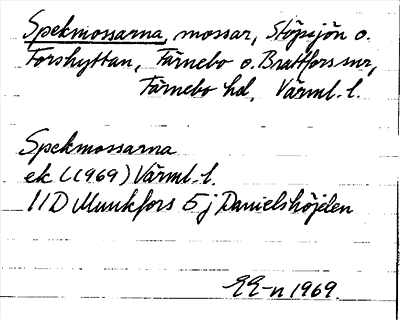 Spekmossarna, mossar, Stöpsjön o.
Forshyttan, Färnebo o. Brattfors snr,
Färnebo hd, Värml. l.
Spekmossarna
ek (1969) Värml. l.
11D Munkfors 5j Danielshöjden
EE-n 1969.